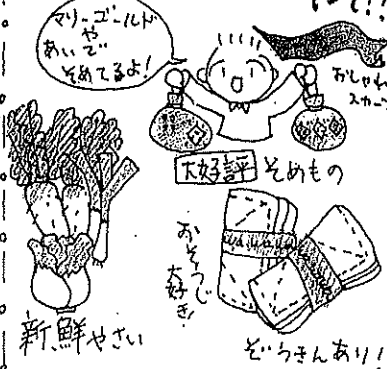 マリーゴールド
や
あいで
そめてるよ!
おしゃれ
スカー
大好評 そめもの
おそうじ
大好き!
新鮮やさい
ぞうきんあり!